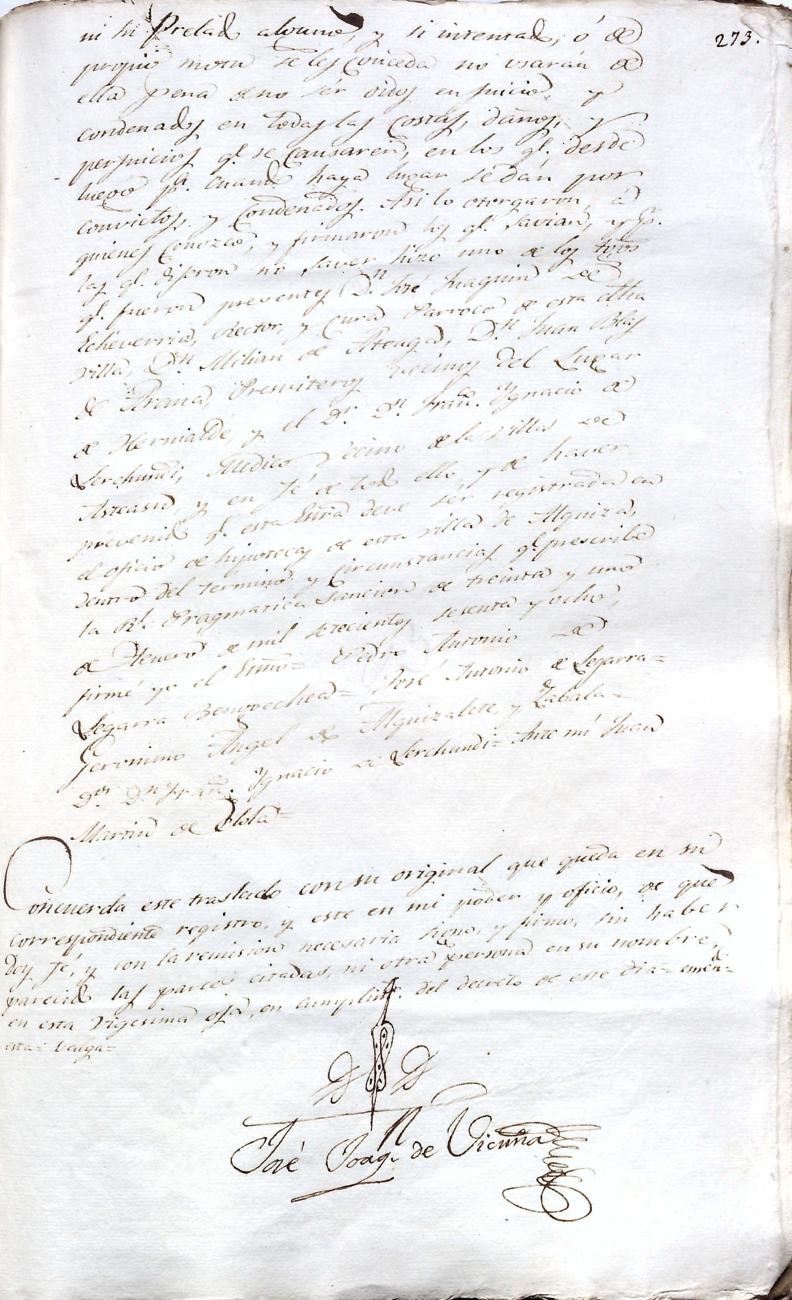 273.
ni su Prelado alguno, y si intentado, ó de
propio motu se les conceda no vsarán de
ella pena de no ser oidos en juicio, y
condenados en todas las costas, daños, y
perjuicios qe. se causaren, en los qe. desde
luego pa. cuando haya lugar se dán por
convictos, y condenados. Asi lo otorgaron, á
quienes conozco, y firmaron los qe. savian, y pr.
las qe. dijeron no saver hizo uno de los tgos
qe. fueron presentes Dn. José Joaquin de
Echeverria, Rector, y Cura Parroco de esta dha
villa, Dn. Milian de Ateaga, Dn. Juan Blas
de Presviteros vecinos del Lugar
de Hernialde, y el Dr. Dn. Franco. Ygnacio de
Lerchundi, Medico vecino de la villa de
Asteasu, y en fé de todo ello, y de haver
prevenido qe. esta Esra deve ser registrada en
el oficio de hipotecas de esta villa de Alquiza,
dentro del termino, y circunstancias qe. prescribe
la Rl. Pragmatica Sancion de treinta y uno
de Henero de mil setecientos sesenta y ocho,
firmé yo el Esno= Pedro Antonio de
Legarra Bengoechea= José Antonio de Legarra=
Geronimo Angel de Alquizalete, y Zabala=
Dor. Dn. Franco. Ygnacio de Lerchundi= Ante mi Juan
Martin de Olola=
Concuerda este traslado con su original que queda en su
correspondiente registro, y este en mi poder y oficio, de que
doy fé, y con la remision necesaria signo, y firmo, sin haber
parecido las partes citadas, ni otra persona en su nombre,
en esta vigesima oja, en cumplimto. del decreto de este dia= emdo=
esta= valga=
José Joaqn. de Vicuña